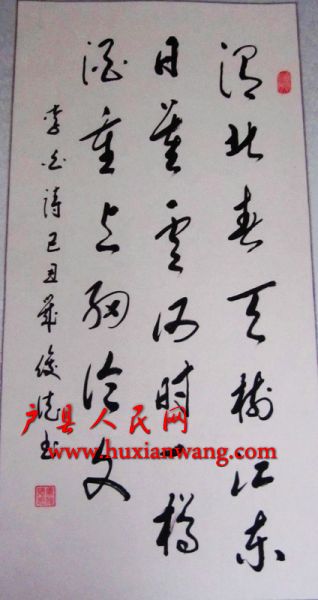 渭北春天树江东
日暮雲何时一樽
酒重与细论文
李白诗己丑岁俊书
户县人民网
www.huxianwang.com